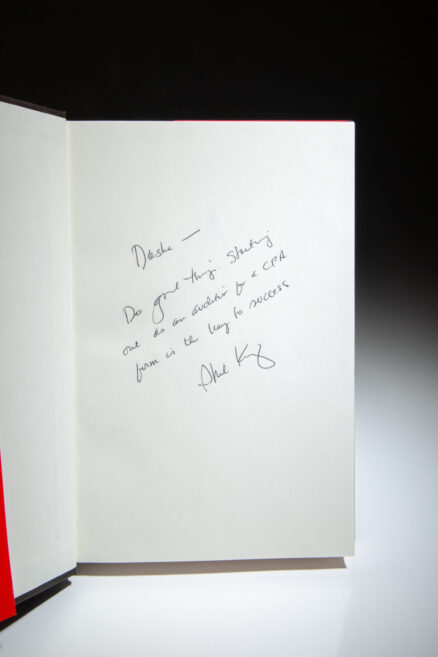 Dasha —
Do great things. Starting
out as an auditor for a CPA
firm is the key to success
Phil K